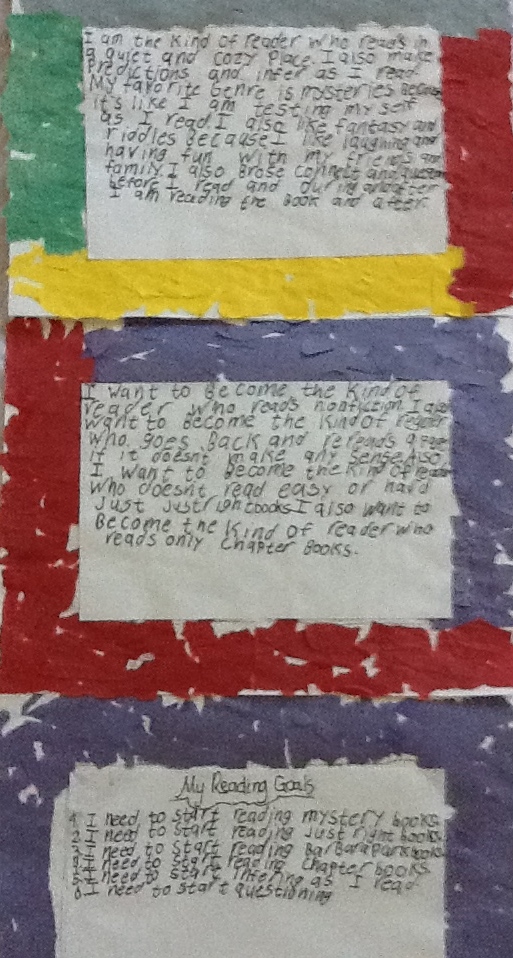 I am the kind of reader who reads in
a quiet and cozy place. I also make
Predictions and infer as I read.
My favorite genre is mysteries Because
it's like I am testing my self
as I read. I also like fantasy and
riddles Because I like laughing and
having fun with my friends and
family. I also Brose connect and question
before I read and during and after
I am reading the Book and after.
I want to Become the kind of
reader who reads nonfiction. I also
want to Become the kind of reader
who goes Back and rereads a page
if it doesn't make any sense. Also
I want to Become the kind of reader
who doesn't read easy or hard
Just Just right books. I also want to
Become the kind of reader who
reads only Chapter Books.
My Reading Goals
1 I need to start reading mystery books
2 I need to start reading Just right books
3 I need to start reading BarBara Park books
4 I need to start reading Chapter books
5 I need to start infering as I read
6 I need to start questioning